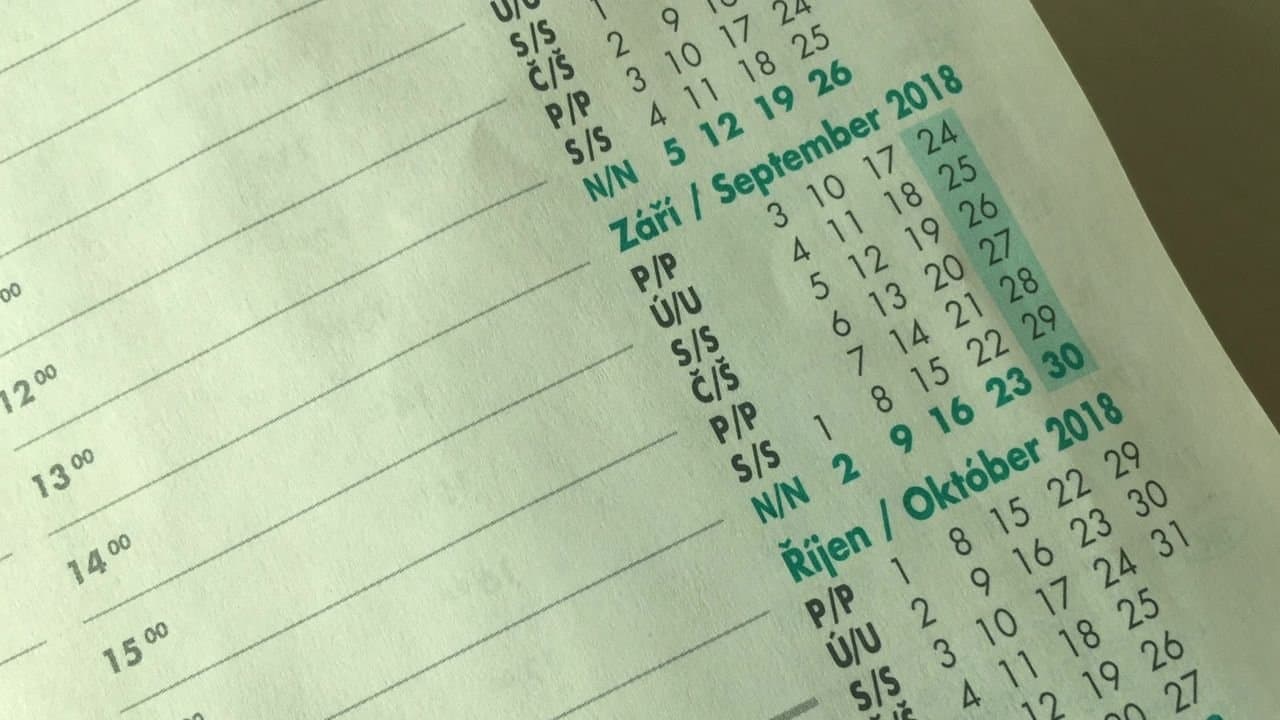 Ú/U 1
S/S 2 9
Č/Š 3 10 17 24
P/P 4 11 18 25
S/S
N/N 5 12 19 26
Září / September 2018
P/P 3 10 17 24
Ú/U 4 11 18 25
S/S 5 12 19 26
Č/Š 6 13 20 27
P/P 7 14 21 28
S/S 1 8 15 22 29
N/N 2 9 16 23 30
Říjen / Október 2018
P/P 1 8 15 22 29
Ú/U 2 9 16 23 30
S/S 3 10 17 24 31
4 11 18 25
12 19 26
27
00
12 00
13 00
14 00
15 00